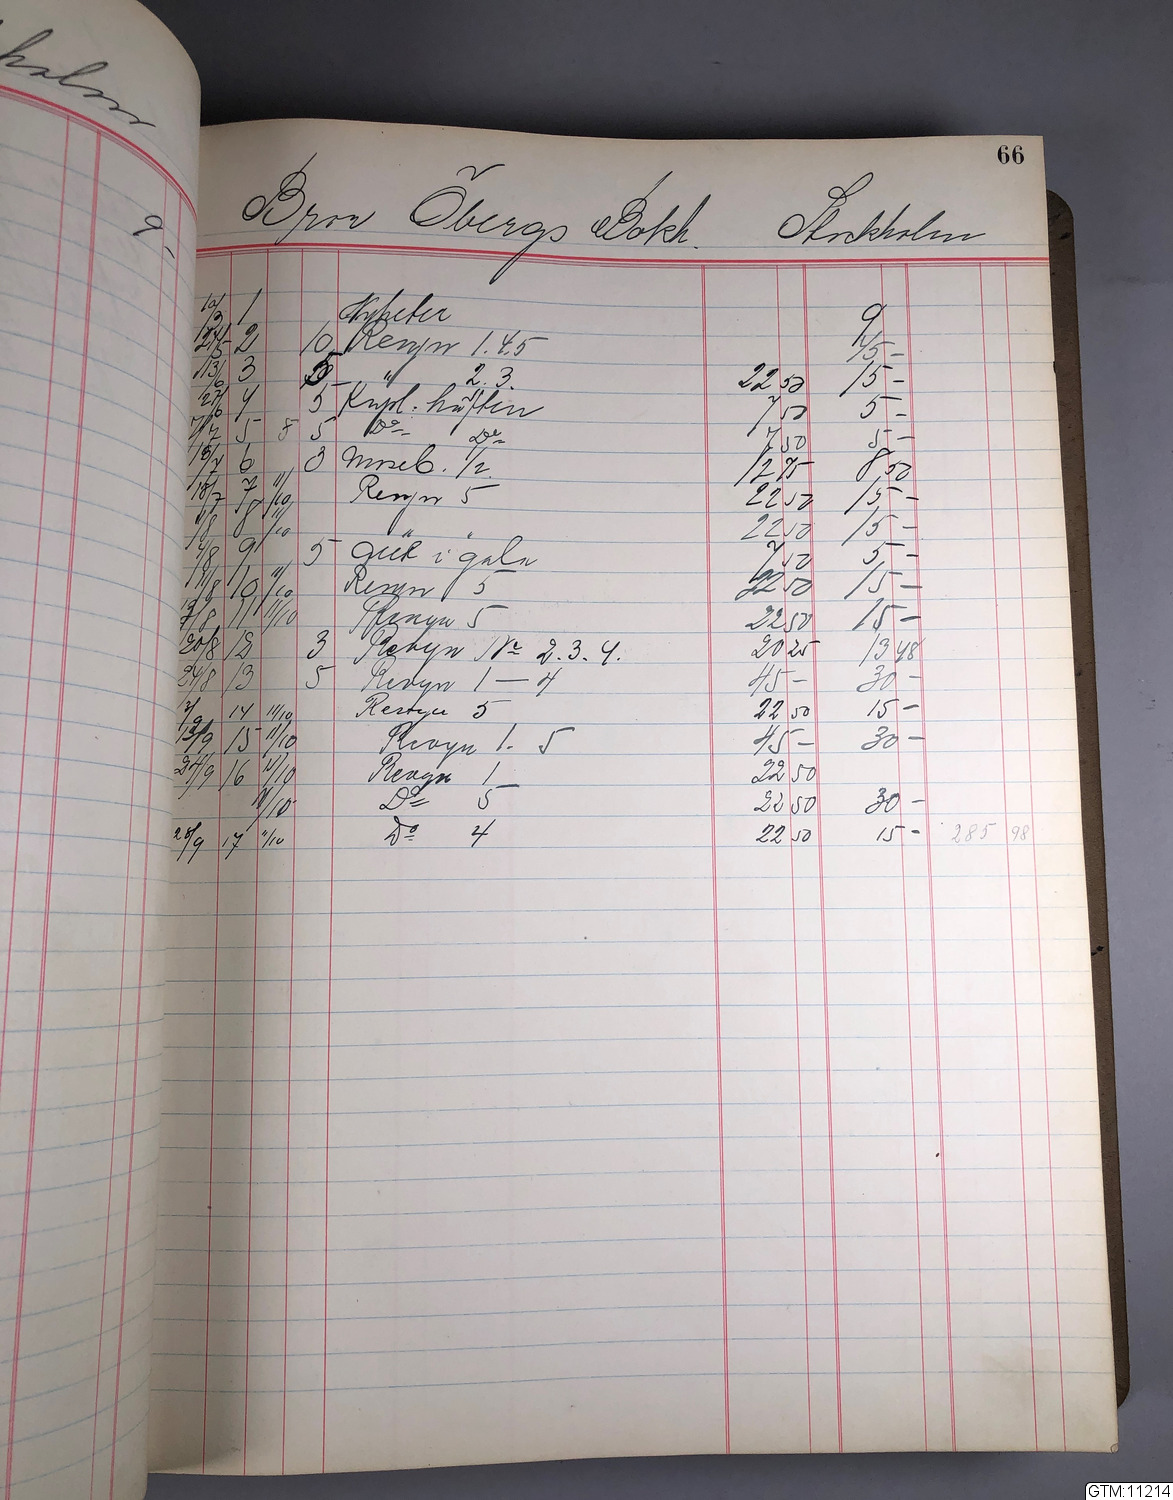 holm
9 -
66
Bror Öbergs Bokh. Stockholm
1 Nyheter 9
2 10 Revyn 1.4.5 45 -
13/6 3 5 " 2.3. 22 50 15 -
27/6 4 5 Kupl. häften 7 50 5 -
7/7 5 8 5 Do Do 7 50 5 -
15/7 6 3 1/2 12 75 8 50
18/7 7 11/10 Revyn 5 22 50 15 -
8 11/10 " " 22 50 15 -
9 5 Gök i gala 7 50 5 -
11/8 10 11/10 Revyn 5 22 50 15 -
17/8 11 11/10 Revyn 5 22 50 15 -
20/8 12 3 Revyn No 2.3.4. 20 25 13 48
24/8 13 5 Revyn 1 — 4 45 - 30 -
14 11/10 Revyn 5 22 50 15 -
13/9 15 11/10 Revyn 1. 5 45 - 30 -
24/9 16 11/10 Revyn 1 22 50
11/10 Do 5 22 50 30 -
28/9 17 11/10 Do 4 22 50 15 - 285 98
GTM:11214